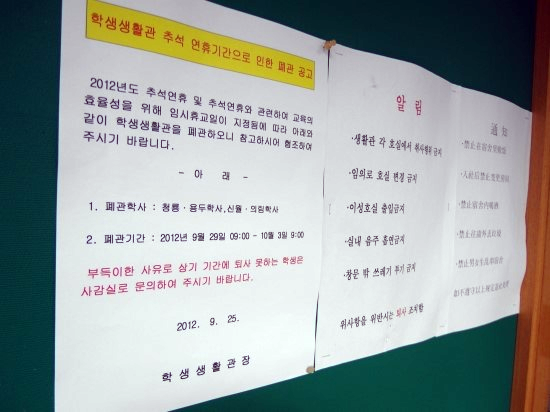 학생생활관 추석 연휴기간으로 인한 폐관 공고
2012년도 추석연휴 및 추석연휴와 관련하여 교육의
효율성을 위해 임시휴교일이 지정됨에 따라 아래와
같이 학생생활관을 폐관하오니 참고하시어 협조하여
주시기 바랍니다.
- 아 래 -
1. 폐관학사 : 청룡·용두학사,신월·의림학사
2. 폐관기간 : 2012년 9월 29일 09:00 - 10월 3일 9:00
부득이한 사유로 상기 기간에 퇴사 못하는 학생은
사감실로 문의하여 주시기 바랍니다.
2012. 9. 25.
학 생 생 활 관 장
알 림
·생활관 각 호실에서 취사행위 금지
·임의로 호실 변경 금지
·이성호실 출입금지
·실내 음주 흡연금지
·창문 밖 쓰레기 투기 금지
위사항을 위반시는 퇴사 조치함
通 知
·禁止在宿舍里做饭
·入社后禁止变更房间
·禁止宿舍内喝酒
·禁止往窗外丢垃圾
·禁止男女生乱串宿舍